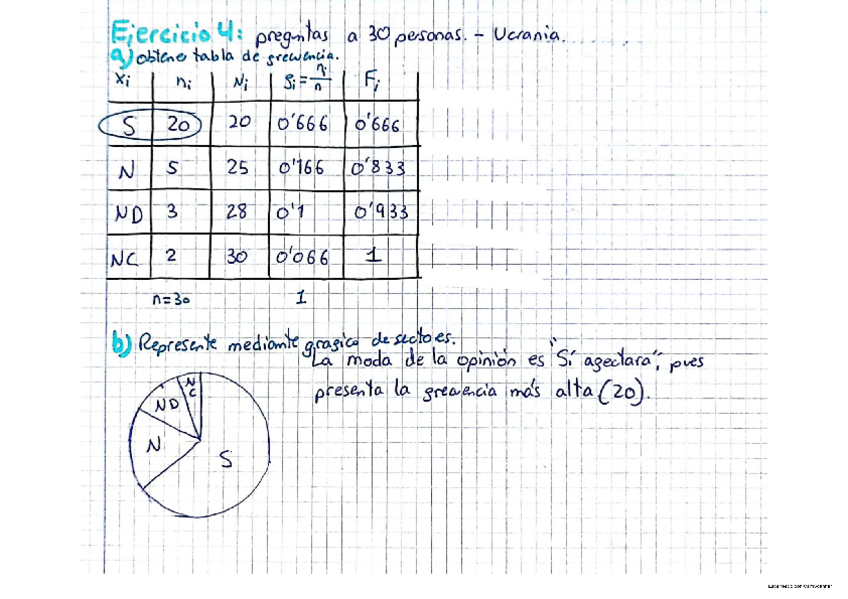 Ejercicio 4: preguntas a 30 personas. - Ucrania.......
a) obtene tabla de frecuencia.
xi ni Ni fi = ni/n Fi
S 20 20 0'666 0'666
N 5 25 0'166 0'833
ND 3 28 0'1 0'933
NC 2 30 0'066 1
n=30 1
b) Represente mediante grafico de sectores.
La moda de la opinión es "Sí afectara", pues
presenta la frecuencia más alta (20).
NC
ND
N
S